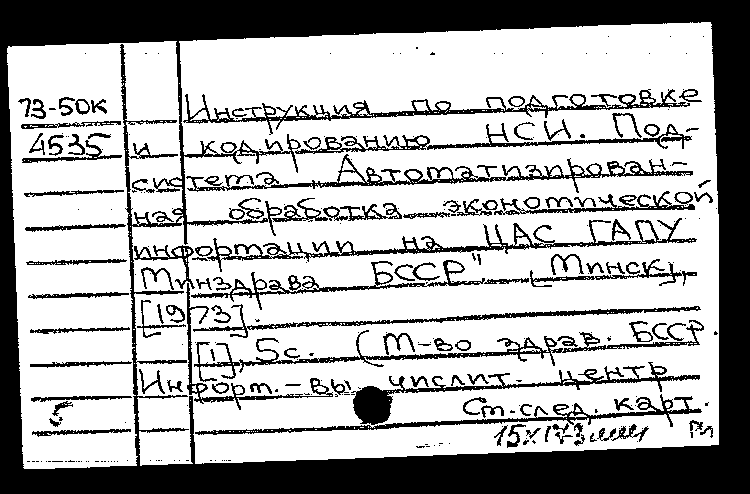 73-50К Инструкция по подготовке
4535 и кодированию НСИ. Под-
система „Автоматизирован-
ная обработка экономической
информации на ЦАС ГАПУ
Минздрава БССР" [Минск],
[1973].
[1], 5с. (М-во здрав. БССР.
Информ.-вычислит. центр
См. след. карт.